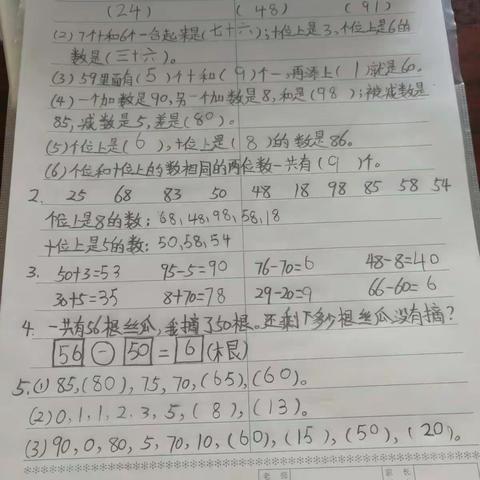 (24) (48) (91)
(2) 7个十和6个一合起来是(七十六);十位上是3,个位上是6的
数是(三十六)。
(3) 59里面有(5)个十和(9)个一,再添上(1)就是60。
(4) 一个加数是90,另一个加数是8,和是(98);被减数是
85,减数是5,差是(80)。
(5) 个位上是(6),十位上是(8)的数是86。
(6) 个位和十位上的数相同的两位数一共有(9)个。
2. 25 68 83 50 48 18 98 85 58 54
个位上是8的数:68,48,98,58,18
十位上是5的数:50,58,54
3. 50+3=53 95-5=90 76-70=6 48-8=40
30+5=35 8+70=78 29-20=9 66-60=6
4. 一共有56根丝瓜,我摘了50根。还剩下多少根丝瓜没有摘?
56 - 50 = 6 (根)
5. (1) 85,(80),75,70,(65),(60)。
(2) 0,1,1,2,3,5,(8),(13)。
(3) 90,0,80,5,70,10,(60),(15),(50),(20)。
老师 家长